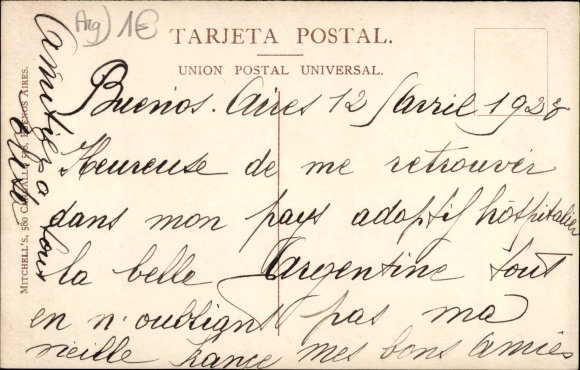 Arg) 1€
TARJETA POSTAL.
UNION POSTAL UNIVERSAL.
Buenos. Aires 12 Avril 1928
Heureuse de me retrouver
dans mon pays adoptif hôspitalier
la belle Argentine tout
en n'oubliant pas ma
vieille France mes bons amies
amitiés a tous
MITCHELL'S, 580 CANGALLO 588, BUENOS AIRES.